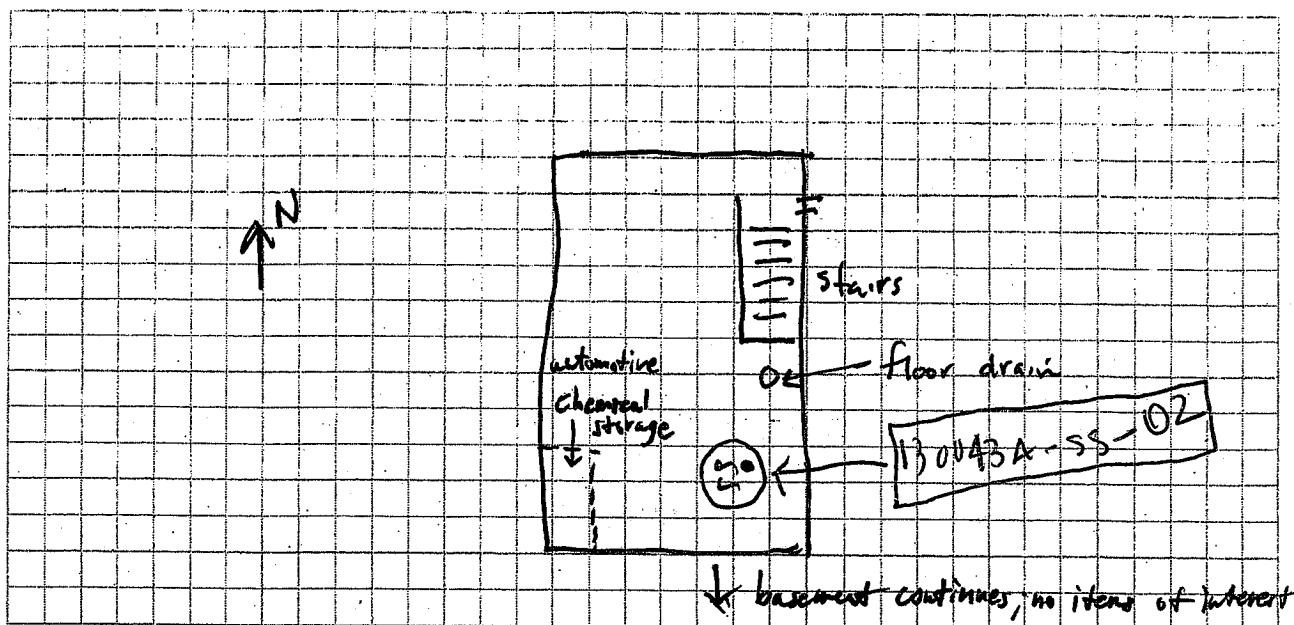 N
stairs
automotive
chemical
storage
floor drain
130043A-SS-02
SS
basement continues, no items of interest